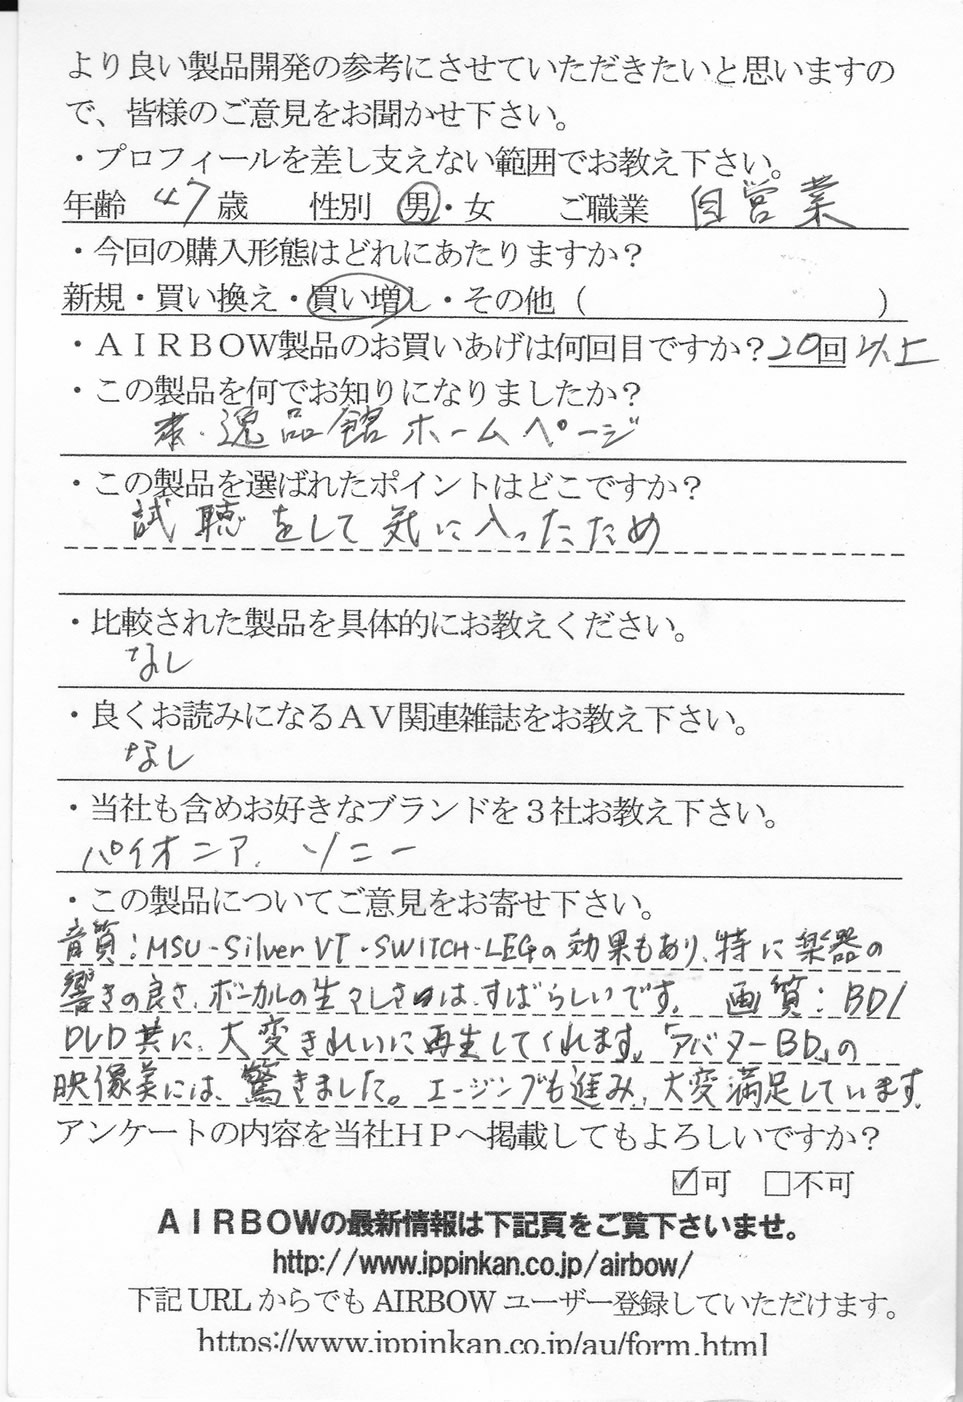 より良い製品開発の参考にさせていただきたいと思いますの
で、皆様のご意見をお聞かせ下さい。
・プロフィールを差し支えない範囲でお教え下さい。
年齢 47歳 性別 男・女 ご職業 自営業
・今回の購入形態はどれにあたりますか？
新規・買い換え・買い増し・その他（ ）
・ＡＩＲＢＯＷ製品のお買いあげは何回目ですか？20回以上
・この製品を何でお知りになりましたか？
逸品館ホームページ
・この製品を選ばれたポイントはどこですか？
試聴をして気に入ったため
・比較された製品を具体的にお教えください。
なし
・良くお読みになるＡＶ関連雑誌をお教え下さい。
なし
・当社も含めお好きなブランドを３社お教え下さい。
パイオニア、ソニー
・この製品についてご意見をお寄せ下さい。
音質：MSU-Silver VT・SWITCH-LEGの効果もあり、特に楽器の
響きの良さ、ボーカルの生々しさは、すばらしいです。 画質：BD/
DVD共に、大変きれいに再生してくれます。「アバターBD」の
映像美には、驚きました。エージングも進み、大変満足しています。
アンケートの内容を当社ＨＰへ掲載してもよろしいですか？
☑可 □不可
ＡＩＲＢＯＷの最新情報は下記頁をご覧下さいませ。
http://www.ippinkan.co.jp/airbow/
下記 URL からでも AIRBOW ユーザー登録していただけます。
https://www.ippinkan.co.jp/au/form.html